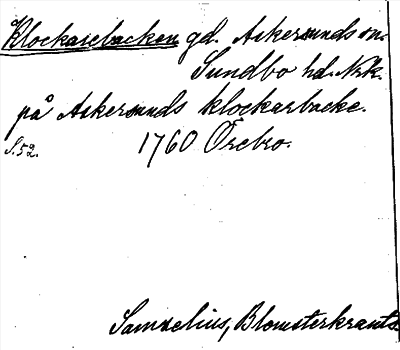 Klockarebacken gd. Askersunds sn.
Sundbo hd. Nrk.
på Askersunds klockarbacke.
S. 52. 1760 Örebro.
Samzelius, Blomsterkrants